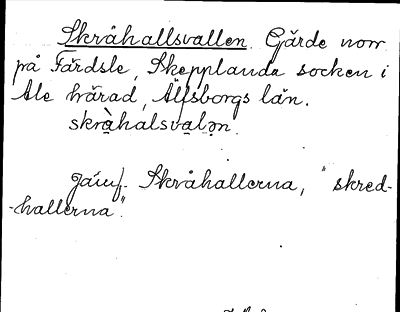 Skråhallsvallen. Gärde norr
på Färdsle, Skepplanda socken i
Ale härad, Älfsborgs län.
skràhalsvalən.
Jämf. Skråhallerna, "skred-
-hallerna".